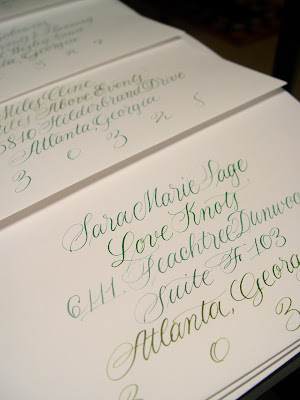 Atlanta, Georgia
3 0 3
Miles Cline
Miles Above Events
5810 Hilderbrand Drive
Atlanta, Georgia
3 0 3 2 8
Sara Marie Sage
Love Knots
6111. Peachtree Dunwoo
Suite F-103
Atlanta, Georgi
3 0 3